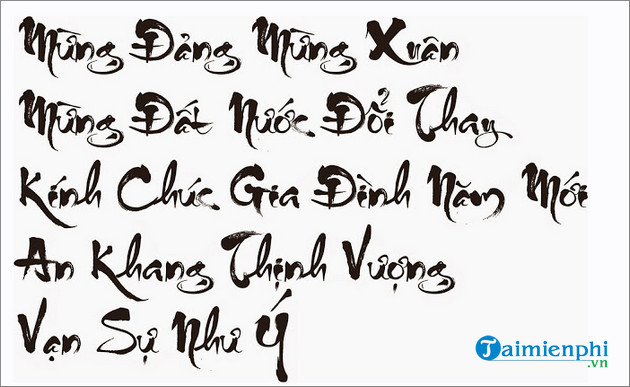 Mừng Đảng Mừng Xuân
Mừng Đất Nước Đổi Thay
Kính Chúc Gia Đình Năm Mới
An Khang Thịnh Vượng
Vạn Sự Như Ý
Taimienphi
.vn